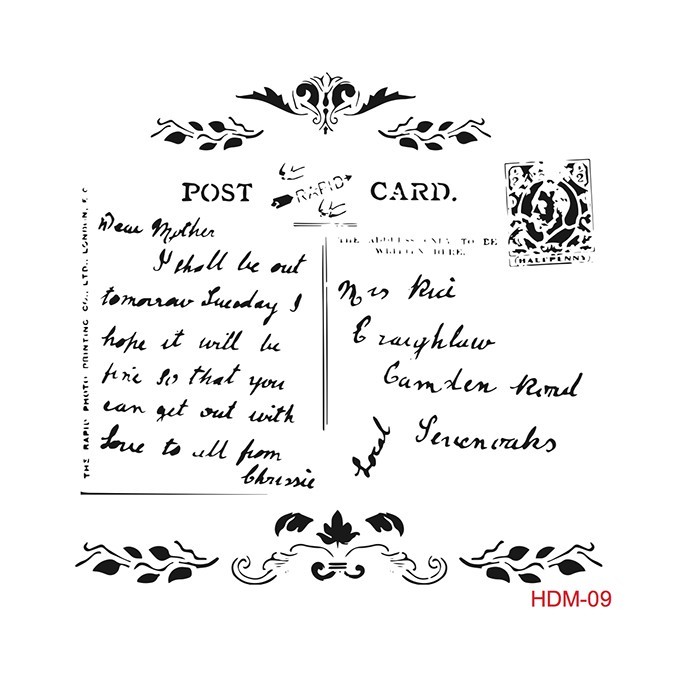 POST RAPID CARD.
THE RAPID PHOTO PRINTING CO., LTD., LONDON, E.C
Dear Mother
I shall be out
tomorrow Tuesday I
hope it will be
fine so that you
can get out with
love to all from
Chrissie
THE ADDRESS ONLY TO BE
WRITTEN HERE.
HALFPENNY
Mrs Rice
Camden Road
Sevenoaks
Local
HDM-09